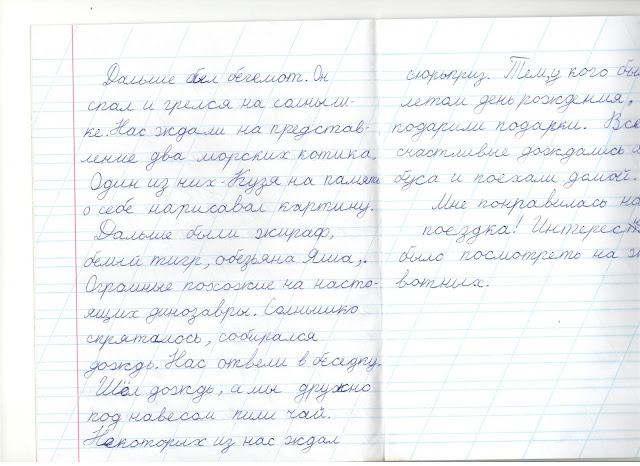 Дальше был бегемот. Он
спал и грелся на солныш-
ке. Нас ждали на представ-
ление два морских котика.
Один из них - Кузя на память
о себе нарисовал картину.
Дальше были жираф,
белый тигр, обезьяна Яша,.
Огромные похожие на насто-
ящих динозавры. Солнышко
спряталось, собирался
дождь. Нас отвели в беседку.
Шёл дождь, а мы дружно
под навесом пили чай.
Некоторих из нас ждал
сюрьприз. Тему кого бы
летом день рождения,
подарили подарки. Все
счастливые дождались а
буса и поехали домой.
Мне понравилась на
поездка! Интересн
было посмотреть на ж
вотних.